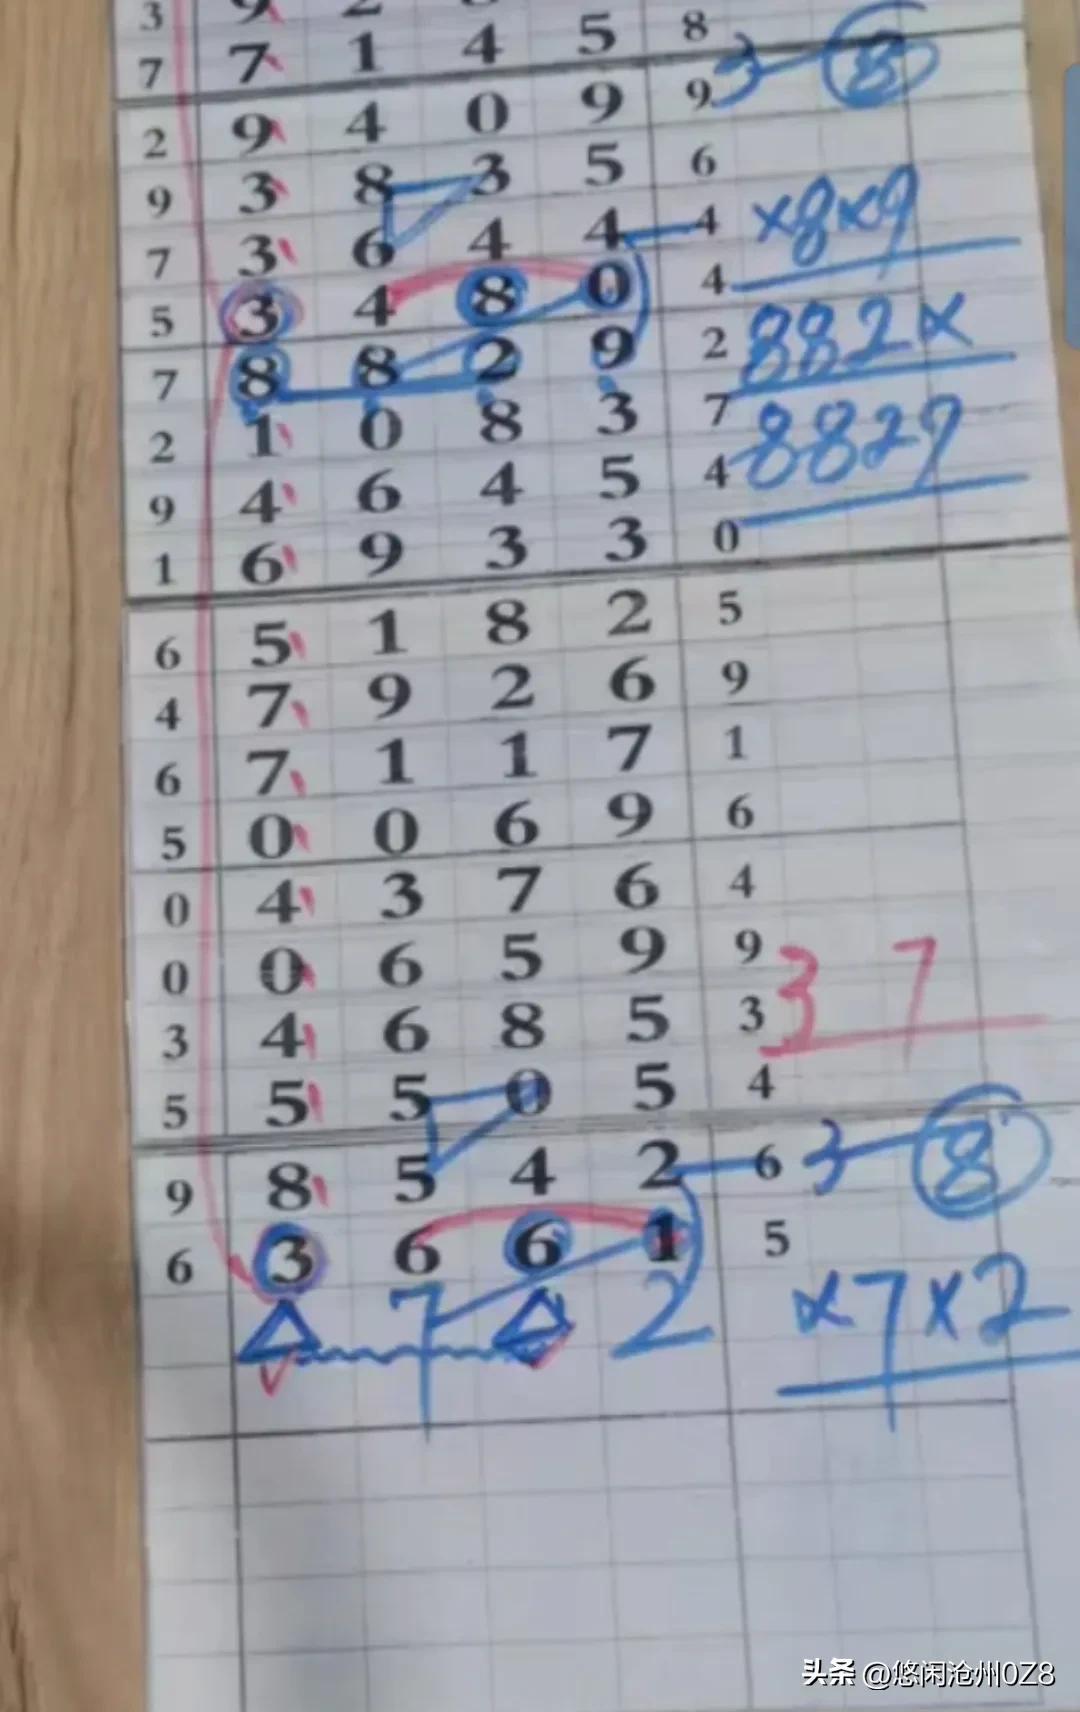 3 9 2
7 7 1 4 5 8
2 9 4 0 9 9 3 8
9 3 8 3 5 6
7 3 6 4 4 4 ×8×9
5 3 4 8 0 4
7 8 8 2 9 2 882×
2 1 0 8 3 7
9 4 6 4 5 4 8829
1 6 9 3 3 0
6 5 1 8 2 5
4 7 9 2 6 9
6 7 1 1 7 1
5 0 0 6 9 6
0 4 3 7 6 4
0 0 6 5 9 9
3 4 6 8 5 3 3 7
5 5 5 0 5 4
9 8 5 4 2 6 3 8
6 3 6 6 1 5
7 2 ×7×2
头条 @悠闲沧州0Z8